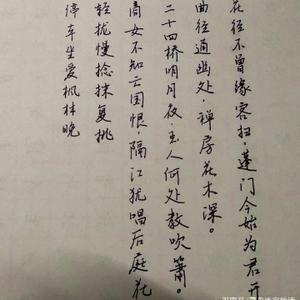 花径不曾缘客扫，蓬门今始为君开
曲径通幽处，禅房花木深。
二十四桥明月夜，玉人何处教吹箫。
商女不知亡国恨，隔江犹唱后庭花
轻扰慢捻抹复挑
停车坐爱枫林晚